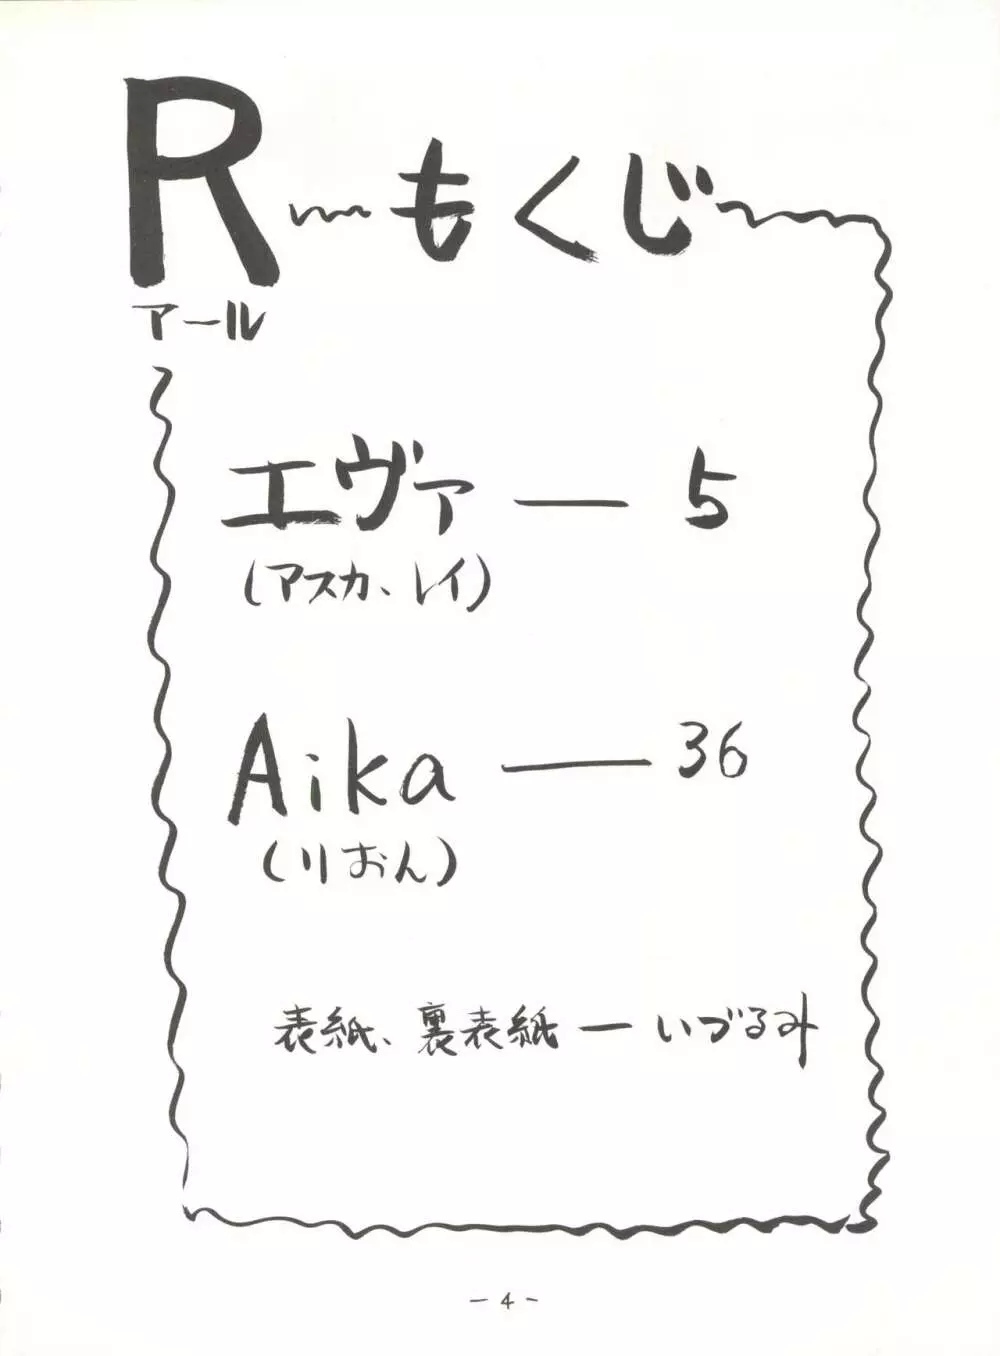 R もくじ
アール
エヴァ — 5
(アスカ、レイ)
Aika — 36
(りおん)
表紙、裏表紙 — いづるみ
- 4 -